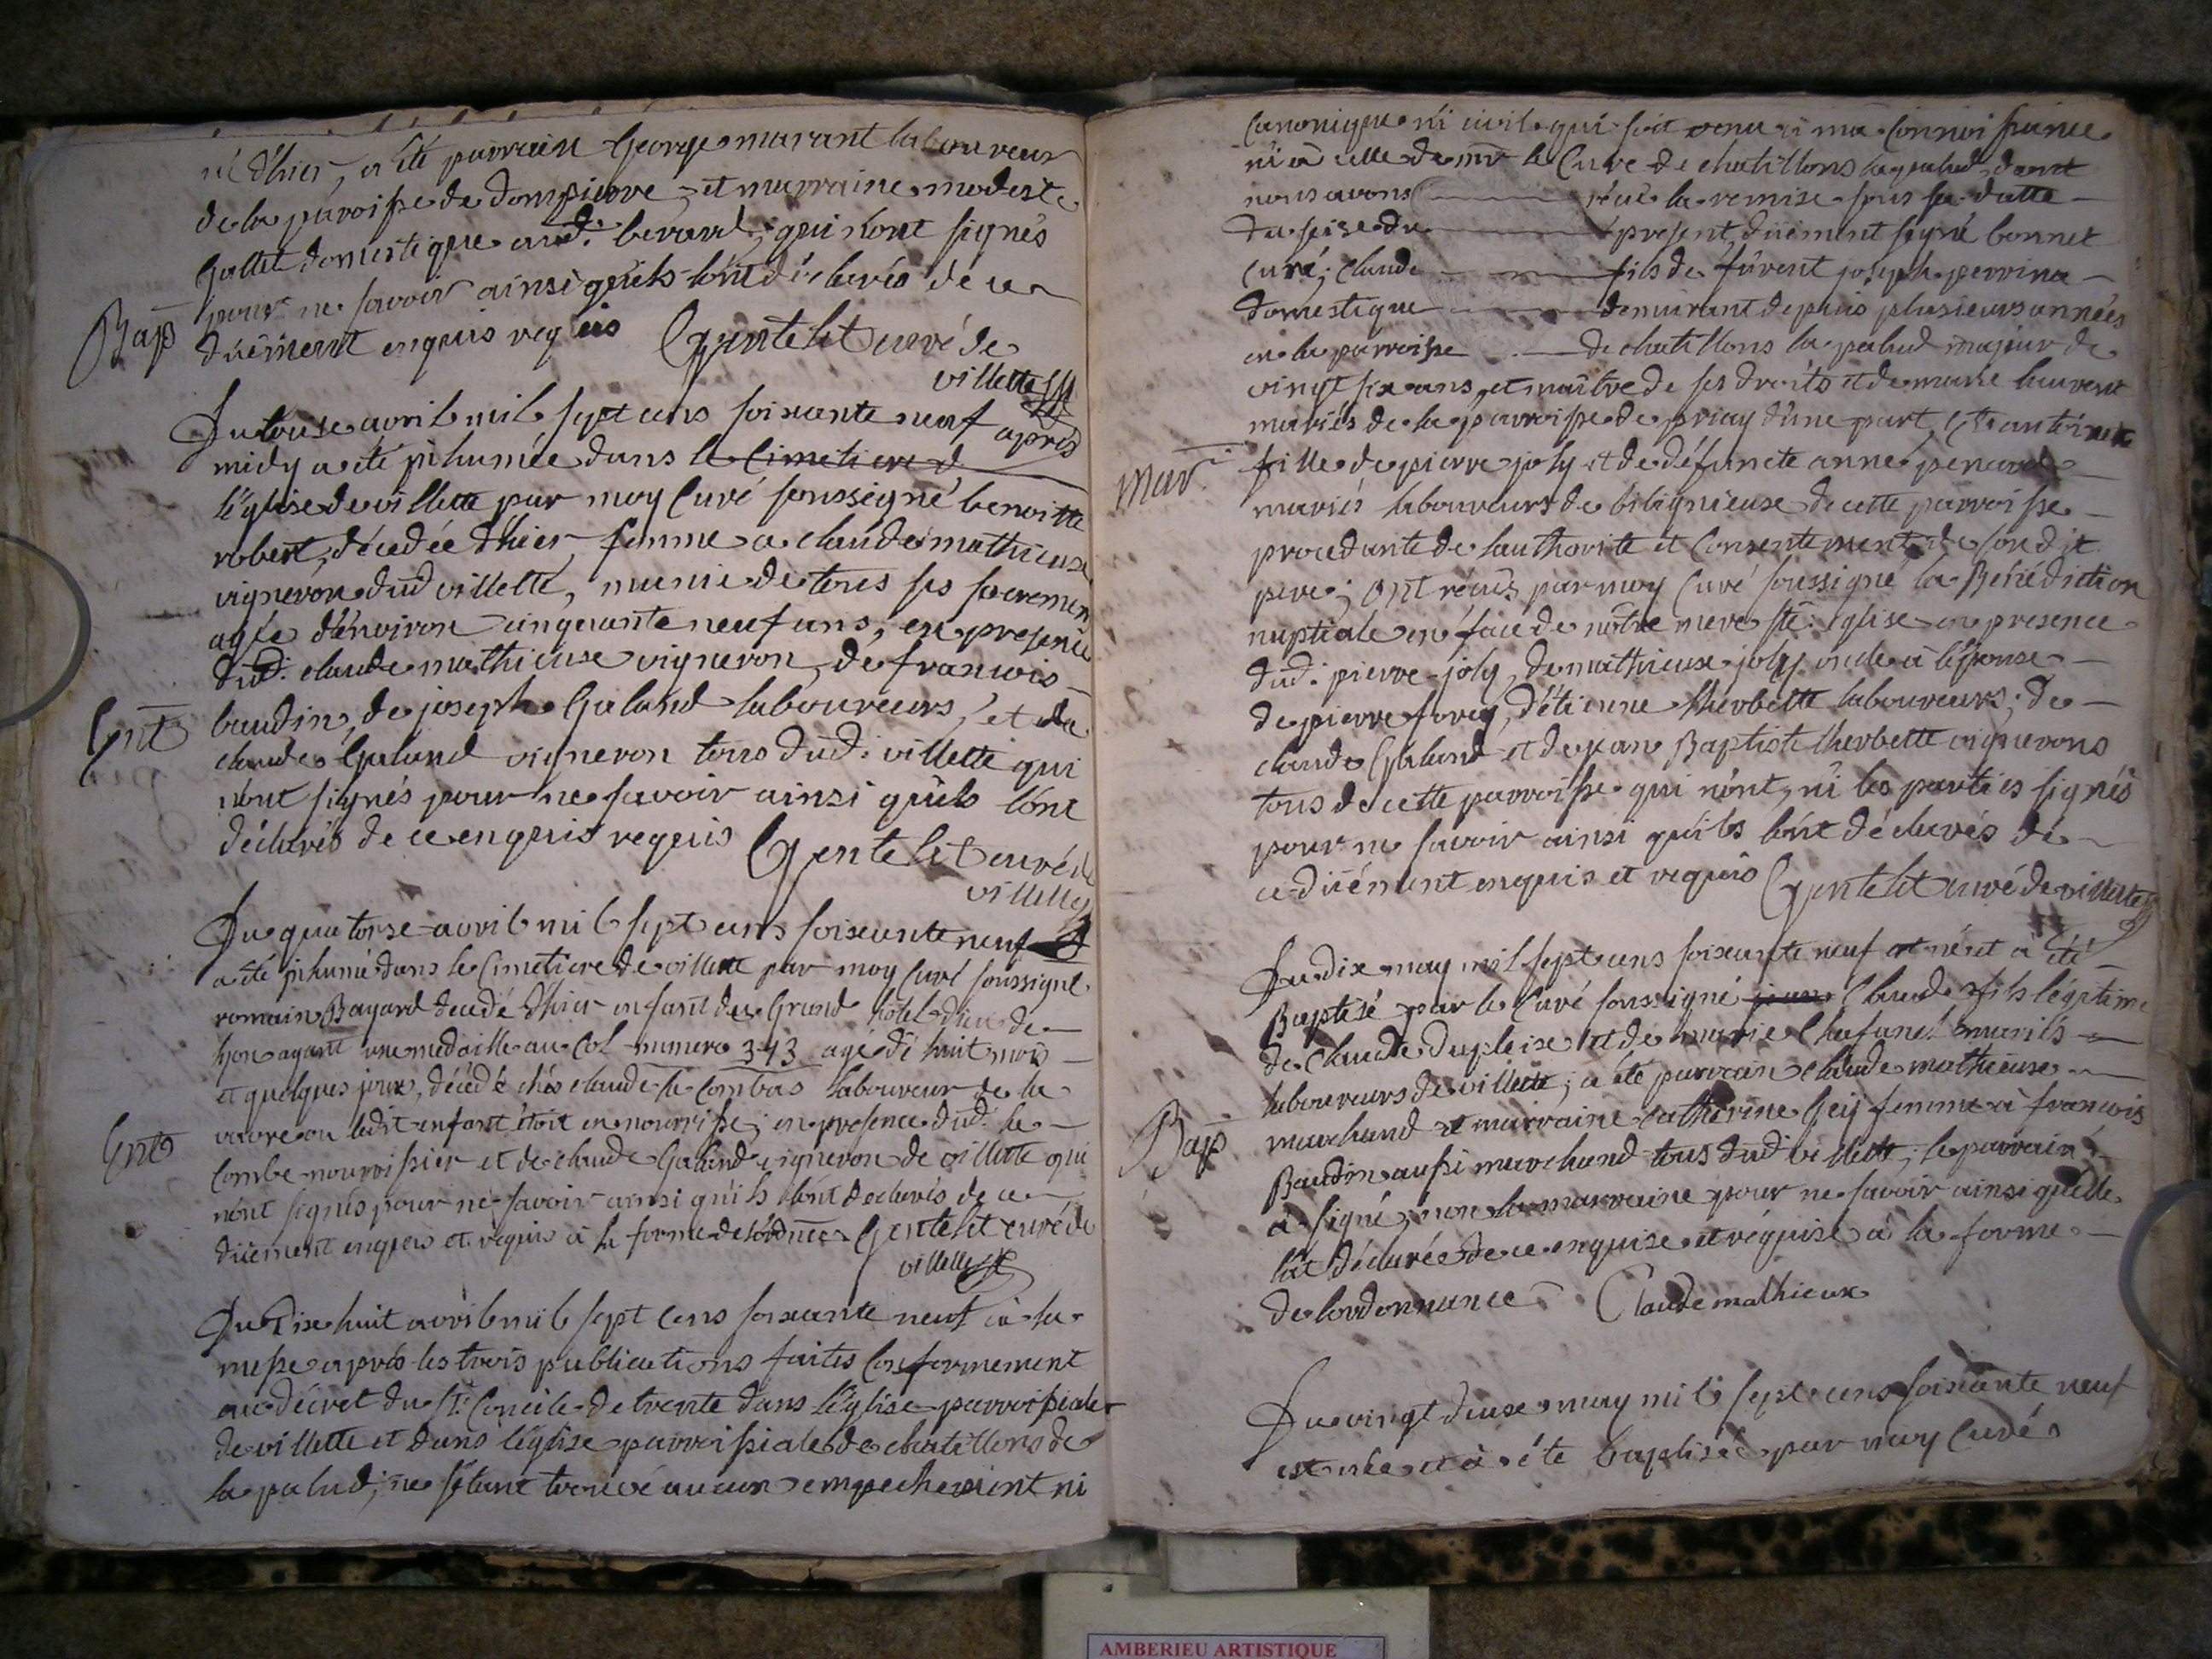 né d'hier, a été parrain George marant laboureur
de la paroisse de dompierre, et marraine modeste
Gallet domestique aud: berard, qui n'ont signés
pour ne savoir ainsi qu'ils l'ont déclarés de ce
Bap
düement enquis requis Gentelet curé de
villette
Du douse avril mil sept cens soixante neuf après
midy a été inhumée dans le cimetiere d
l'église de villette par moy Curé soussigné benoitte
robert, décédée d'hier femme a claude mathieux
vigneron dud villette, munie de tous ses sacremen
agée d'environ cinquante neuf ans, en presence
dud: claude mathieuse vigneron, de francois
Ent baudin, de joseph Galand laboureurs, et de
claude Galand vigneron tous dud: villette qui
n'ont signés pour ne savoir ainsi qu'ils l'ont
déclarés de ce enquis requis Gentelet curé de
villette
Du quatorse avril mil sept cens soixante neuf
a été inhumé dans le Cimetiere de villette par moy Curé soussigné
romain Bayard décédé d'hier enfant du Grand hôtel dieu de
lyon ayant une medaille au Col numero 343 agé de huit mois
et quelques jours, décédé chés claude la Combas laboureur de la
Ent
vavre ou ledit enfant étoit en nourrisse; en presence dud: la
Combe nourrissier et de claude Galand vigneron de villette qui
n'ont signés pour ne savoir ainsi qu'ils l'ont declarés de ce
düement enquis et requis à la forme de l'ordnce Gentelet curé de
villette
Du Dix huit avril mil sept cens soixante neuf à la
messe après les trois publications faites Conformement
au décret du St: Concile de trente dans l'église parroissiale
de villette et dans l'église parroissiale de chatillons de
la palud; ne s'étant trouvé aucun empechement ni
Canonique ni civil qui soit venu à ma Connoissance
ni à celle de mr le Curé de chatillons la palud dont
nous avons réçu la remise sous sa datte
du seise du présent düement signé bonnet
Curé; claude fils de furent joseph perrina
domestique demurant depuis plusieurs années
en la parroisse de chatillons la palud majeur de
vingt six ans, et maître de ses droits et de marie laurent
mariés de la parroisse de priay d'une part, Et antoinette
Mar:
fille de pierre joly et de défuncte anne penard
mariés laboureurs de bilignieuse de cette parroisse
procedante de lauthorité et Consentement de sondit
pere; ont réçus par moy Curé soussigné la Bénédiction
nuptiale en face de nôtre mere Ste: église en presence
dud: pierre joly, de mathieuse joly oncle à l'épouse
de pierre forey, d'étienne lherbette laboureurs; de
claude Galand et de jean Baptiste lherbette vignerons
tous de cette parroisse qui n'ont, ni les parties signés
pour ne savoir ainsi qu'ils l'ont déclarés de
ce düement enquis et requis Gentelet curé de villette
Du dix may mil sept cens soixante neuf est né et a été
Baptisé par le Curé soussigné jean Claude fils légitime
de Claude dupleix et de marie Chafanel mariés
laboureurs de villette; a été parrain claude mathieux
Bap
marchand et marraine catherine Gey femme à francois
Baudin aussi marchand tous dud villette; le parrain
a signé, non la marraine pour ne savoir ainsi quelle
l'at déclarée de ce enquise et réquise à la forme
de lordonnance Claude mathieux
Du vingt deuse may mil sept cens soixante neuf
est née et à été baptisée par moy Curé
AMBERIEU ARTISTIQUE